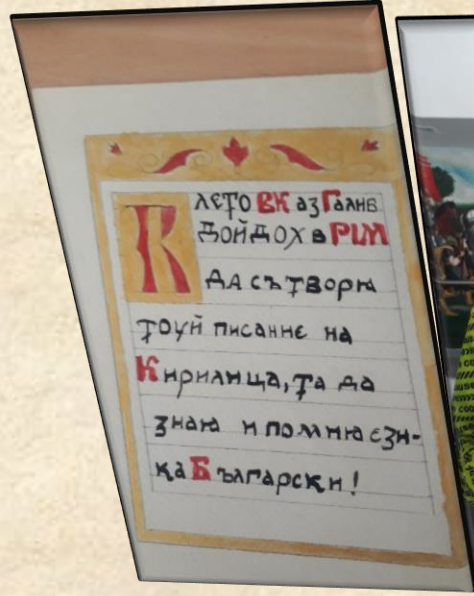 К лето ВК аз Галив
дойдох в РІМ
да сътворя
тоуй писание на
Кирилица, та да
зная и помня ези-
ка Български!